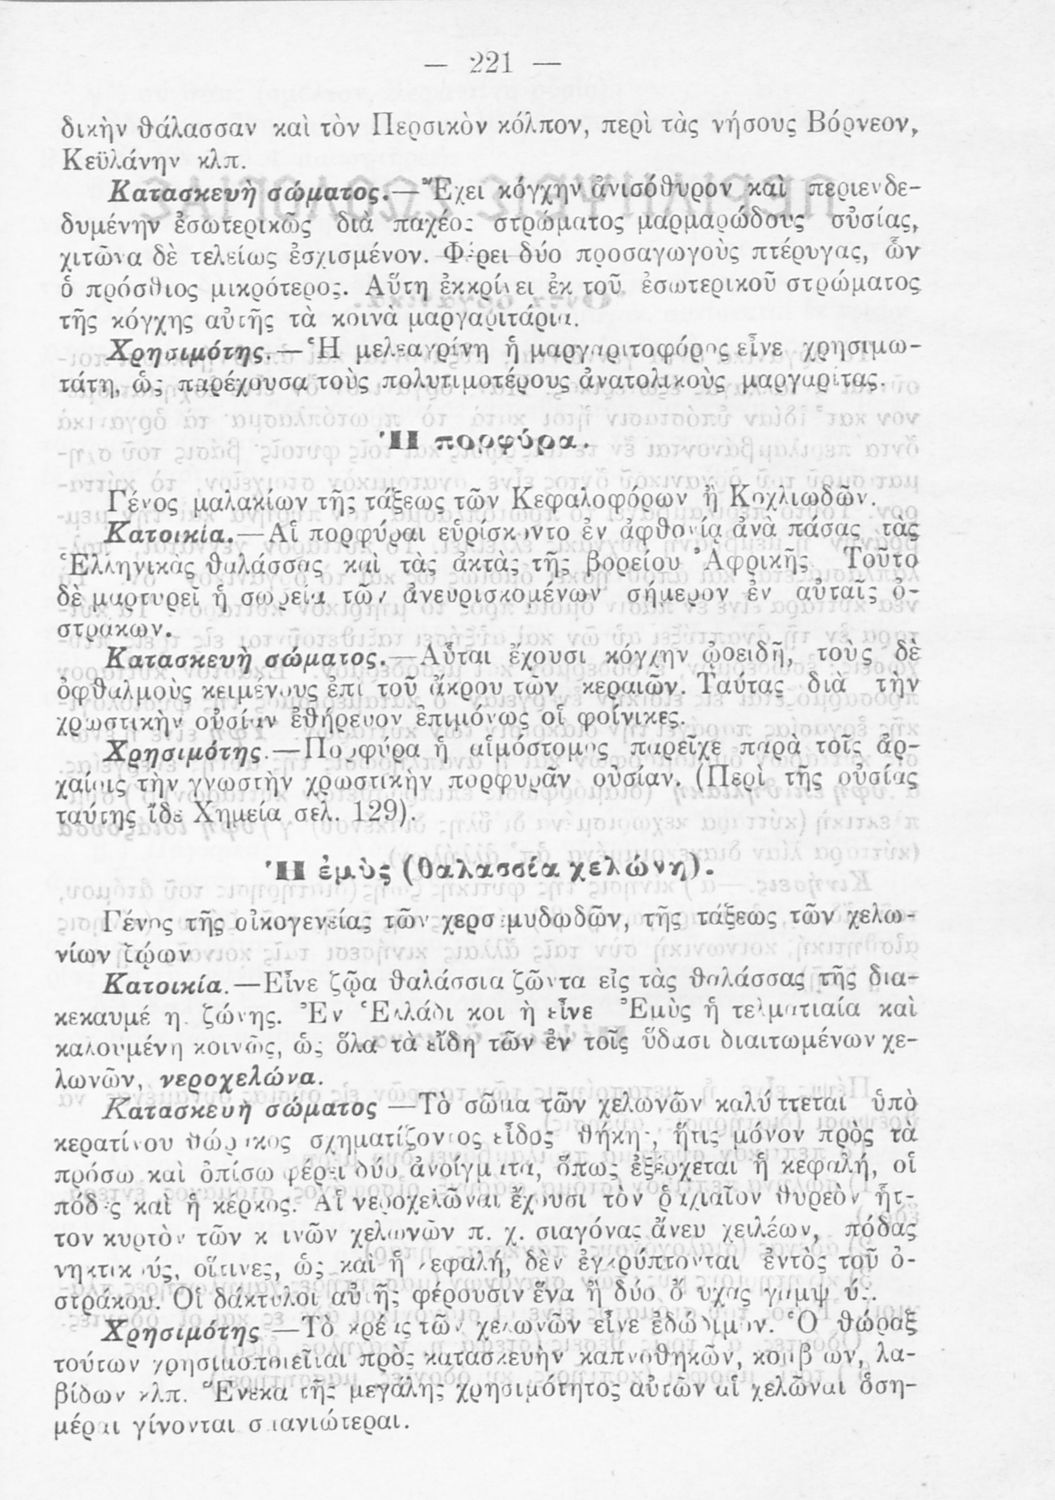 — 221 —
δικὴν θάλασσαν καὶ τὸν Περσικὸν κόλπον, περὶ τὰς νήσους Βόρνεον,
Κεϋλάνην κλπ.
Κατασκευὴ σώματος.—Ἔχει κόγχην ἀνισόθυρον καὶ περιενδε-
δυμένην ἐσωτερικῶς διὰ παχέος στρώματος μαρμαρώδους οὐσίας,
χιτῶνα δὲ τελείως ἐσχισμένον. Φέρει δύο προσαγωγοὺς πτέρυγας, ὧν
ὁ πρόσθιος μικρότερος. Αὕτη ἐκκρίνει ἐκ τοῦ ἐσωτερικοῦ στρώματος
τῆς κόγχης αὐτῆς τὰ κοινὰ μαργαριτάρια.
Χρησιμότης.—Ἡ μελεαγρίνη ἡ μαργαριτοφόρος εἶνε χρησιμω-
τάτη, ὡς παρέχουσα τοὺς πολυτιμοτέρους ἀνατολικοὺς μαργαρίτας.
Ἡ πορφύρα.
Γένος μαλακίων τῆς τάξεως τῶν Κεφαλοφόρων ἢ Κοχλιωδῶν.
Κατοικία.—Αἱ πορφύραι εὑρίσκοντο ἐν ἀφθονίᾳ ἀνὰ πάσας τὰς
Ἑλληνικὰς θαλάσσας καὶ τὰς ἀκτὰς τῆς βορείου Ἀφρικῆς Τοῦτο
δὲ μαρτυρεῖ ἡ σωρεία τῶν ἀνευρισκομένων σήμερον ἐν αὐταῖς ὀ-
στράκων.
Κατασκευὴ σώματος.—Αὗται ἔχουσι κόγχην ᾠοειδῆ, τοὺς δὲ
ὀφθαλμοὺς κειμένους ἐπὶ τοῦ ἄκρου τῶν κεραιῶν. Ταύτας διὰ τὴν
χρωστικὴν οὐσίαν ἐθήρευον ἐπιμόνως οἱ φοίνικες.
Χρησιμότης.—Πορφύρα ἡ αἱμόστομος παρεῖχε παρὰ τοῖς ἀρ-
χαίοις τὴν γνωστὴν χρωστικὴν πορφυρᾶν οὐσίαν. (Περὶ τῆς οὐσίας
ταύτης ἴδε Χημεία σελ. 129).
Ἡ ἐμὺς (θαλασσία χελώνη).
Γένος τῆς οἰκογενείας τῶν χερσεμυδωδῶν, τῆς τάξεως τῶν χελω-
νίων ζῴων
Κατοικία.—Εἶνε ζῷα θαλάσσια ζῶντα εἰς τὰς θαλάσσας τῆς δια-
κεκαυμένης ζώνης. Ἐν Ἑλλάδι κοινὴ εἶνε Ἐμὺς ἡ τελματιαία καὶ
καλουμένη κοινῶς, ὡς ὅλα τὰ εἴδη τῶν ἐν τοῖς ὕδασι διαιτωμένων χε-
λωνῶν, νεροχελώνα.
Κατασκευὴ σώματος—Τὸ σῶμα τῶν χελωνῶν καλύπτεται ὑπὸ
κερατίνου θώρακος σχηματίζοντος εἶδος θήκης, ἥτις μόνον πρὸς τὰ
πρόσω καὶ ὀπίσω φέρει δύο ἀνοίγματα, ὅπως ἐξέρχεται ἡ κεφαλή, οἱ
πόδες καὶ ἡ κέρκος. Αἱ νεροχελῶναι ἔχουσι τὸν ῥαχιαῖον θυρεὸν ἧτ-
τον κυρτὸν τῶν κοινῶν χελωνῶν π. χ. σιαγόνας ἄνευ χειλέων, πόδας
νηκτικούς, οἵτινες, ὡς καὶ ἡ κεφαλή, δὲν ἐγκρύπτονται ἐντὸς τοῦ ὀ-
στράκου. Οἱ δάκτυλοι αὐτῆς φέρουσιν ἕνα ἢ δύο ὄνυχας γαμψούς.
Χρησιμότης—Τὸ κρέας τῶν χελωνῶν εἶνε ἐδώδιμον. Ὁ θώραξ
τούτων χρησιμοποιεῖται πρὸς κατασκευὴν καπνοθηκῶν, κομβίων, λα-
βίδων κλπ. Ἕνεκα τῆς μεγάλης χρησιμότητος αὐτῶν αἱ χελῶναι ὁση-
μέραι γίνονται σπανιώτεραι.